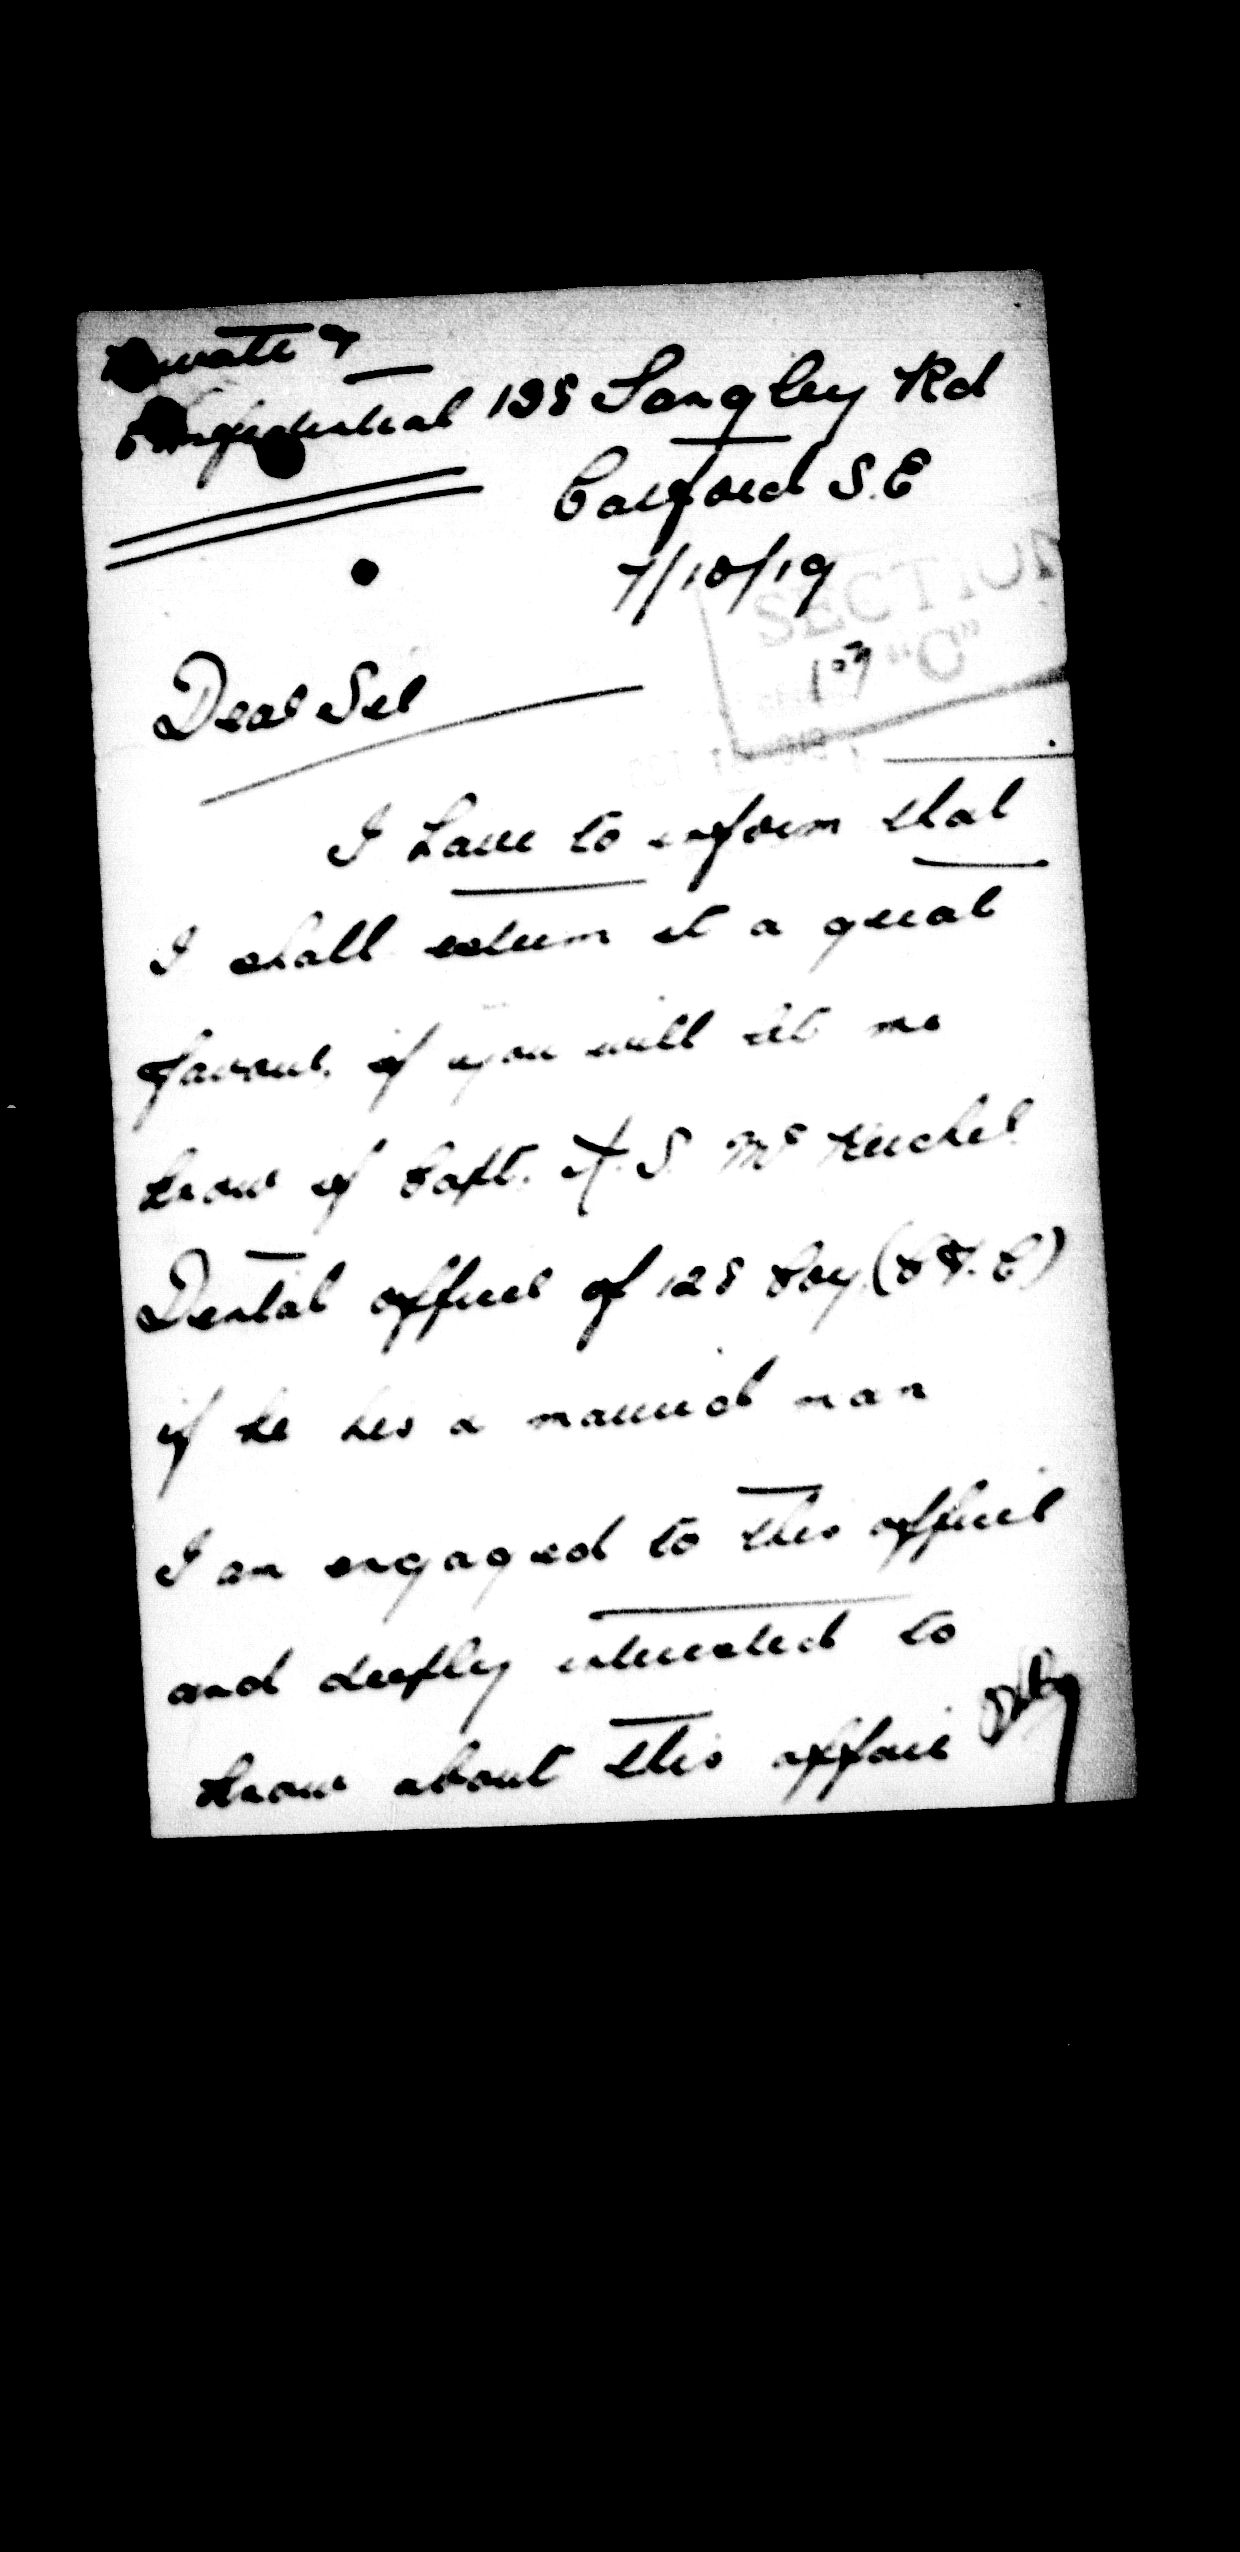 Private &
Confidential 128 Sangley Rd
Catford S.E
7/10/19
SECTION
"C"
Dear Sir
I have to inform that
I shall esteem it a great
favour, if you will let me
know if Capt. A. S. Mc Kechel
Dental officer of 128 Coy. (C.F.C)
if he his a married man
I am engaged to this officer
and deeply interested to
know about this affair